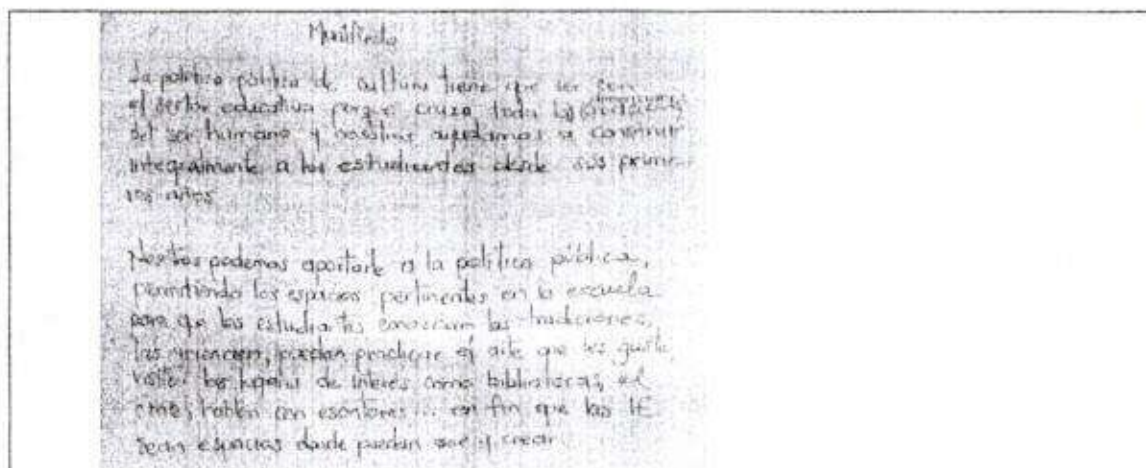 Manifiesto
La política pública de cultura tiene que ser con
el sector educativo porque cruza toda la
del ser humano y nosotros ayudamos a construir
integralmente a los estudiantes desde sus prime-
ros años.
Nosotros podemos aportarle a la política pública,
permitiendo los espacios pertinentes en la escuela
para que los estudiantes conozcan las tradiciones,
las vivencien, puedan practicar el arte que les guste,
visiten los lugares de interés como bibliotecas, el
cine, hablen con escritores... en fin que las IE
sean espacios donde puedan ser y crear.